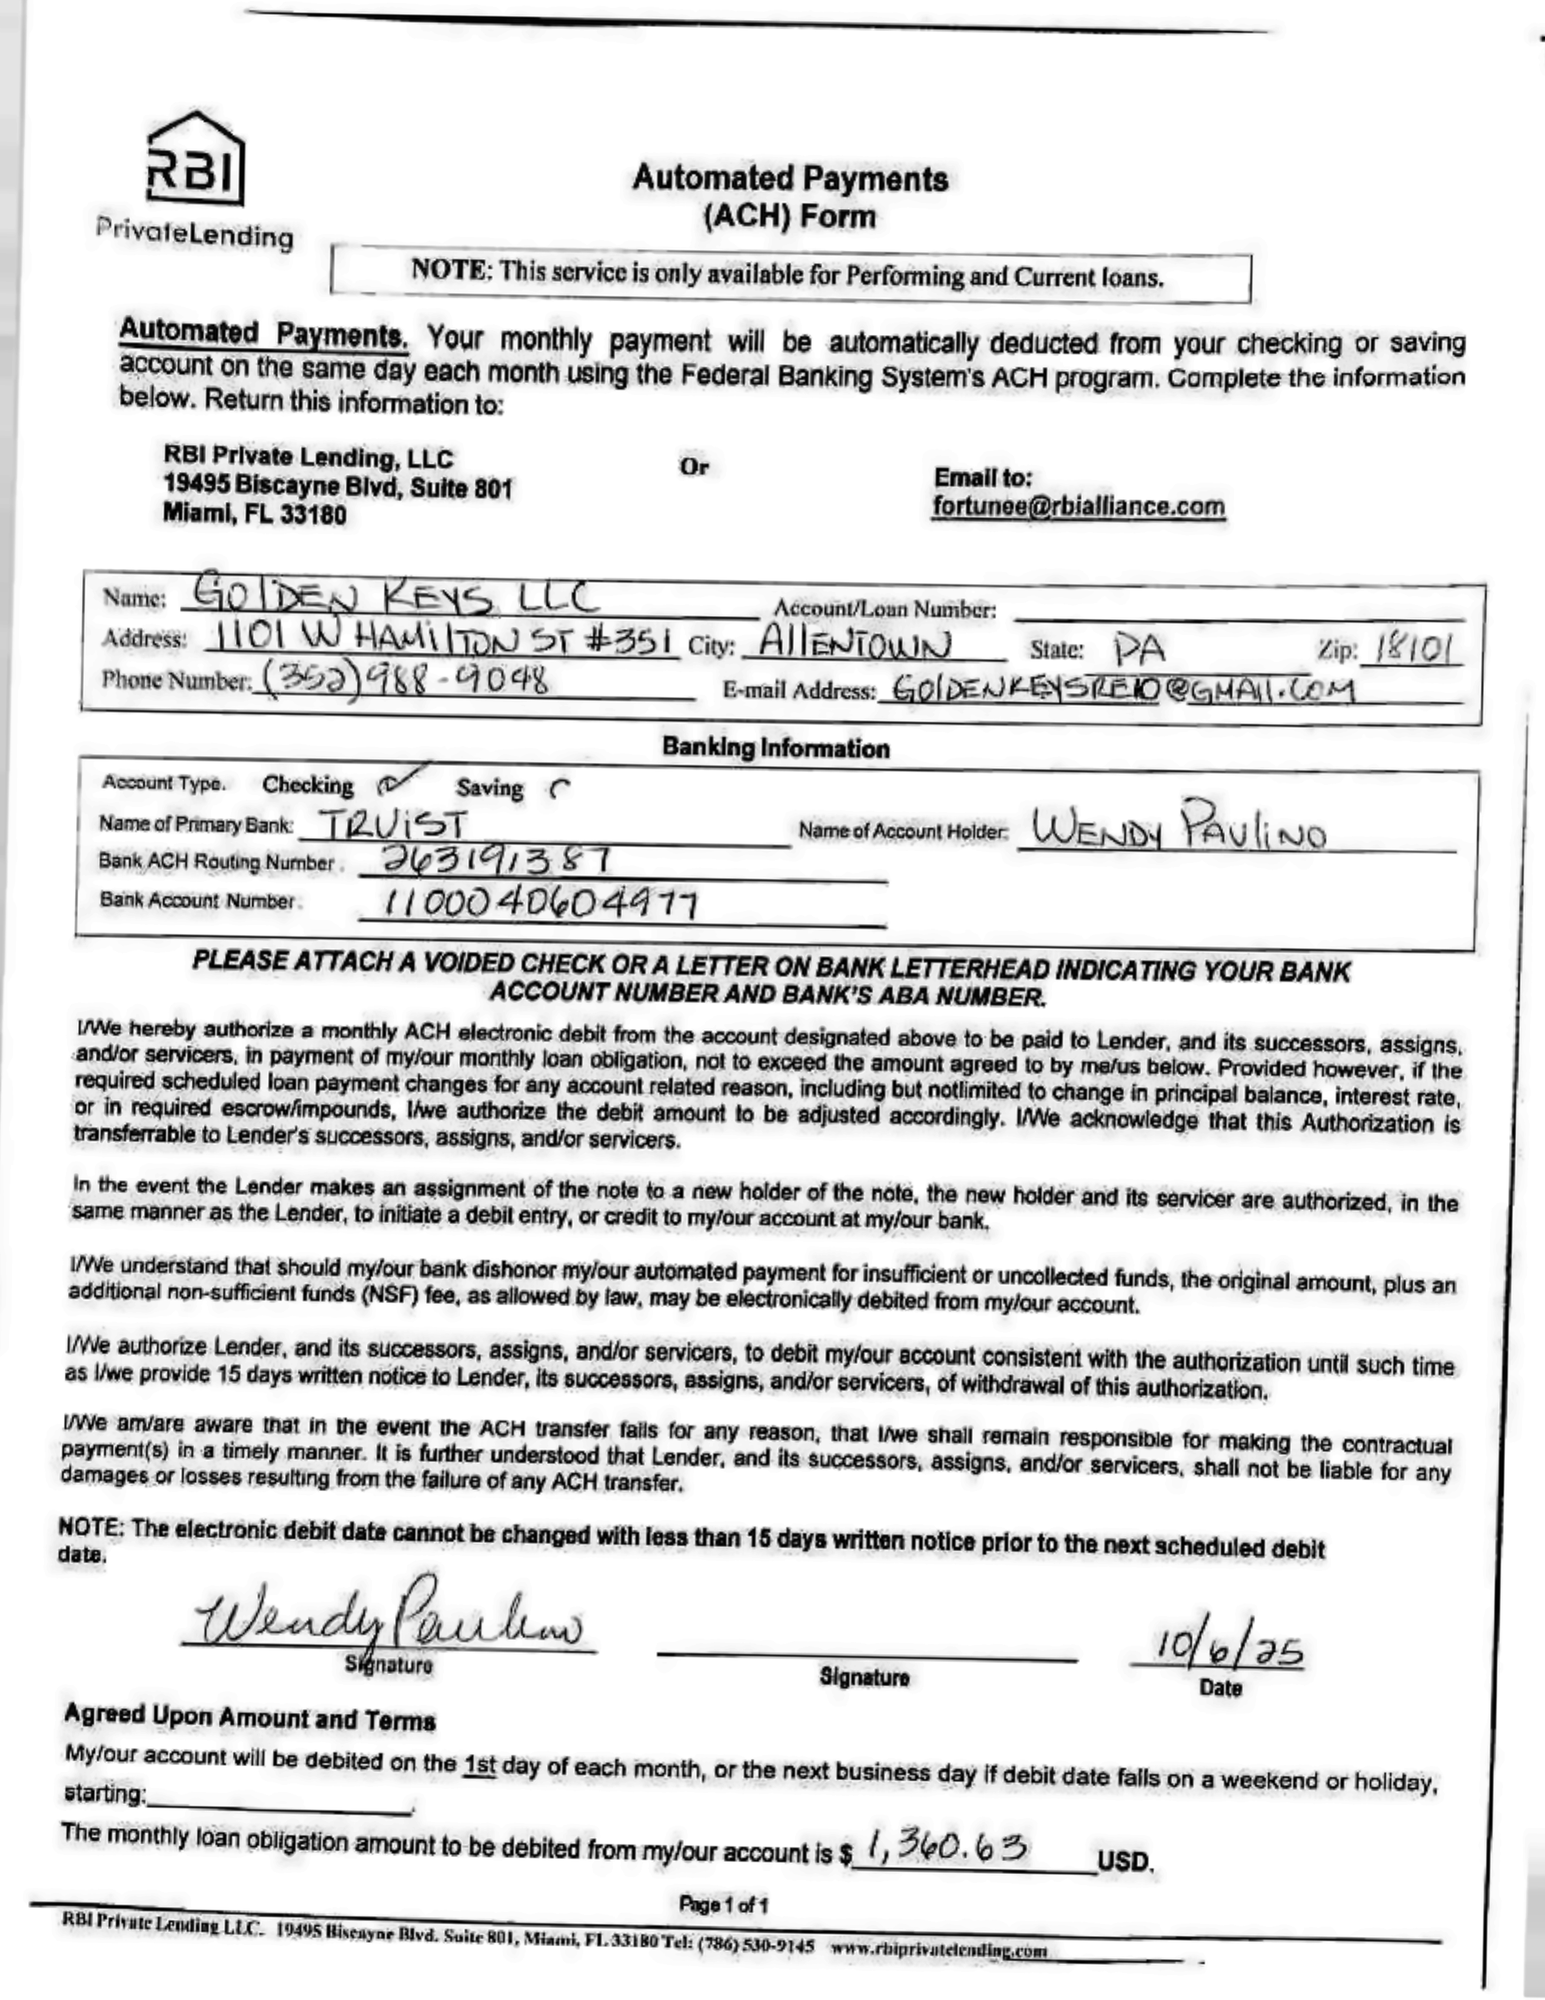 RBI
PrivateLending
Automated Payments
(ACH) Form
NOTE: This service is only available for Performing and Current loans.
Automated Payments. Your monthly payment will be automatically deducted from your checking or saving
account on the same day each month using the Federal Banking System's ACH program. Complete the information
below. Return this information to:
RBI Private Lending, LLC
19495 Biscayne Blvd, Suite 801
Miami, FL 33180
Or
Email to:
fortunee@rbialliance.com
Name: GOlDEN KEYS LLC Account/Loan Number:
Address: 1101 W HAMilTON ST #351 City: AllENTOWN State: PA Zip: 18101
Phone Number: (352) 988-9048 E-mail Address: GOlDENKEYSREIO@GMAil.COM
Banking Information
Account Type. Checking Saving
Name of Primary Bank: TRUiST Name of Account Holder: WENDY PAUliNO
Bank ACH Routing Number. 263191387
Bank Account Number. 1100040604977
PLEASE ATTACH A VOIDED CHECK OR A LETTER ON BANK LETTERHEAD INDICATING YOUR BANK
ACCOUNT NUMBER AND BANK'S ABA NUMBER.
I/We hereby authorize a monthly ACH electronic debit from the account designated above to be paid to Lender, and its successors, assigns,
and/or servicers, in payment of my/our monthly loan obligation, not to exceed the amount agreed to by me/us below. Provided however, if the
required scheduled loan payment changes for any account related reason, including but notlimited to change in principal balance, interest rate,
or in required escrow/impounds, I/we authorize the debit amount to be adjusted accordingly. I/We acknowledge that this Authorization is
transferrable to Lender's successors, assigns, and/or servicers.
In the event the Lender makes an assignment of the note to a new holder of the note, the new holder and its servicer are authorized, in the
same manner as the Lender, to initiate a debit entry, or credit to my/our account at my/our bank.
I/We understand that should my/our bank dishonor my/our automated payment for insufficient or uncollected funds, the original amount, plus an
additional non-sufficient funds (NSF) fee, as allowed by law, may be electronically debited from my/our account.
I/We authorize Lender, and its successors, assigns, and/or servicers, to debit my/our account consistent with the authorization until such time
as I/we provide 15 days written notice to Lender, its successors, assigns, and/or servicers, of withdrawal of this authorization.
I/We am/are aware that in the event the ACH transfer fails for any reason, that I/we shall remain responsible for making the contractual
payment(s) in a timely manner. It is further understood that Lender, and its successors, assigns, and/or servicers, shall not be liable for any
damages or losses resulting from the failure of any ACH transfer.
NOTE: The electronic debit date cannot be changed with less than 15 days written notice prior to the next scheduled debit
date.
Wendy Paulino 10/6/25
Signature Signature Date
Agreed Upon Amount and Terms
My/our account will be debited on the 1st day of each month, or the next business day if debit date falls on a weekend or holiday,
starting:
The monthly loan obligation amount to be debited from my/our account is $ 1,360.63 USD.
Page 1 of 1
RBI Private Lending LLC. 19495 Biscayne Blvd. Suite 801, Miami, FL 33180 Tel: (786) 530-9145 www.rbiprivatelending.com